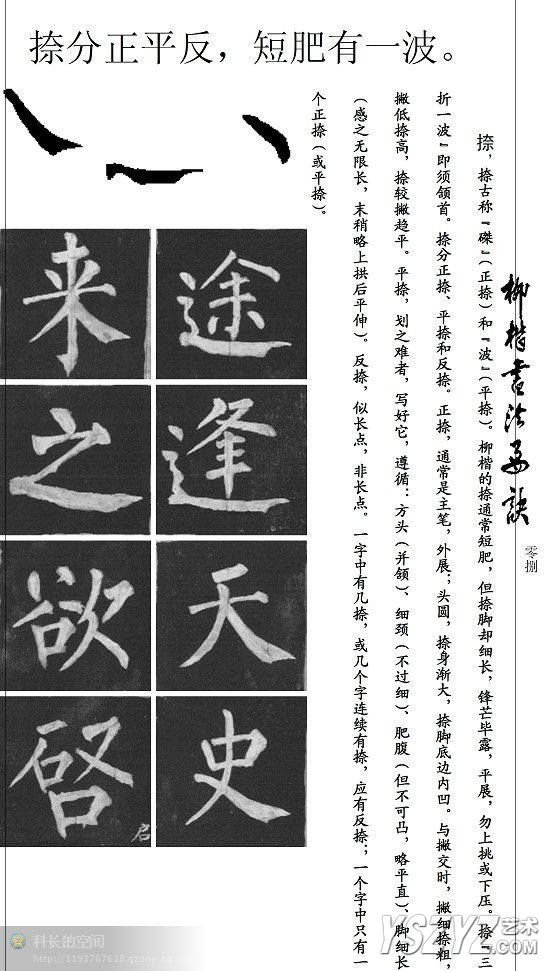 捺分正平反，短肥有一波。
柳楷书法要诀
零捌
捺，捺古称『磔』（正捺）和『波』（平捺）。柳楷的捺通常短肥，但捺脚却细长，锋芒毕露，平展，勿上挑或下压。捺『三
折一波』即须领首。捺分正捺、平捺和反捺。正捺，通常是主笔，外展；头圆，捺身渐大，捺脚底边内凹。与撇交时，撇细捺粗，
撇低捺高，捺较撇趋平。平捺，划之难者，写好它，遵循：方头（并颌）、细颈（不过细）、肥腹（但不可凸，略平直）、脚细长
（感之无限长，末稍略上拱后平伸）。反捺，似长点，非长点。一字中有几捺，或几个字连续有捺，应有反捺；一个字中只有一
个正捺（或平捺）。
途
来
逢
之
天
欲
史
啓
启
科长的空间
http://1193767618.qzone.qq.com
YSZYZ 艺术
.COM